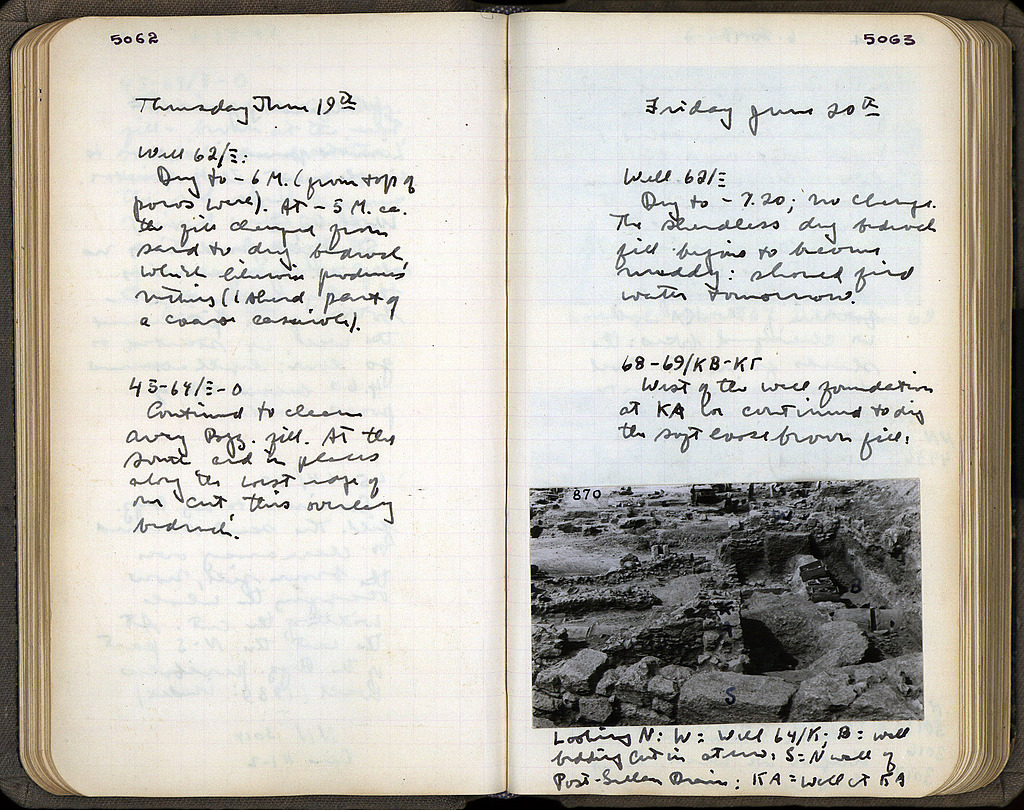 5062
Thursday June 19th
Well 62/Ξ:
Dug to -6 M. (from top of
poros well). At -5 M. ca.
the fill changed from
sand to dug bedrock,
which likewise produces
nothing (1 sherd, part of
a coarse casserole).
43-64/Ξ-O
Continued to clean
away Byz. fill. At the
south and in places
along the west edge of
our cut, this overlay
bedrock.
5063
Friday June 20th
Well 62/Ξ
Dug to -7.20; no change.
The sherdless dug bedrock
fill begins to become
muddy: should find
water tomorrow.
68-69/KB-KΓ
West of the well foundation
at KA we continued to dig
the soft loose brown fill.
870
S
Looking N: W = Well 64/K; B = well
bedding cut in stereo; S = N wall of
Post-Sullan Drain; KA = Wall at KA